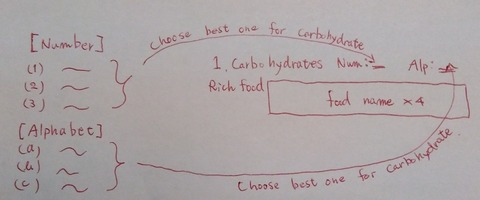 Choose best one for carbohydrate
[Number]
(1)
(2)
(3)
1. Carbohydrates Num: Alp:
Rich food
food name ×4
[Alphabet]
(a)
(b)
(c)
Choose best one for carbohydrate.